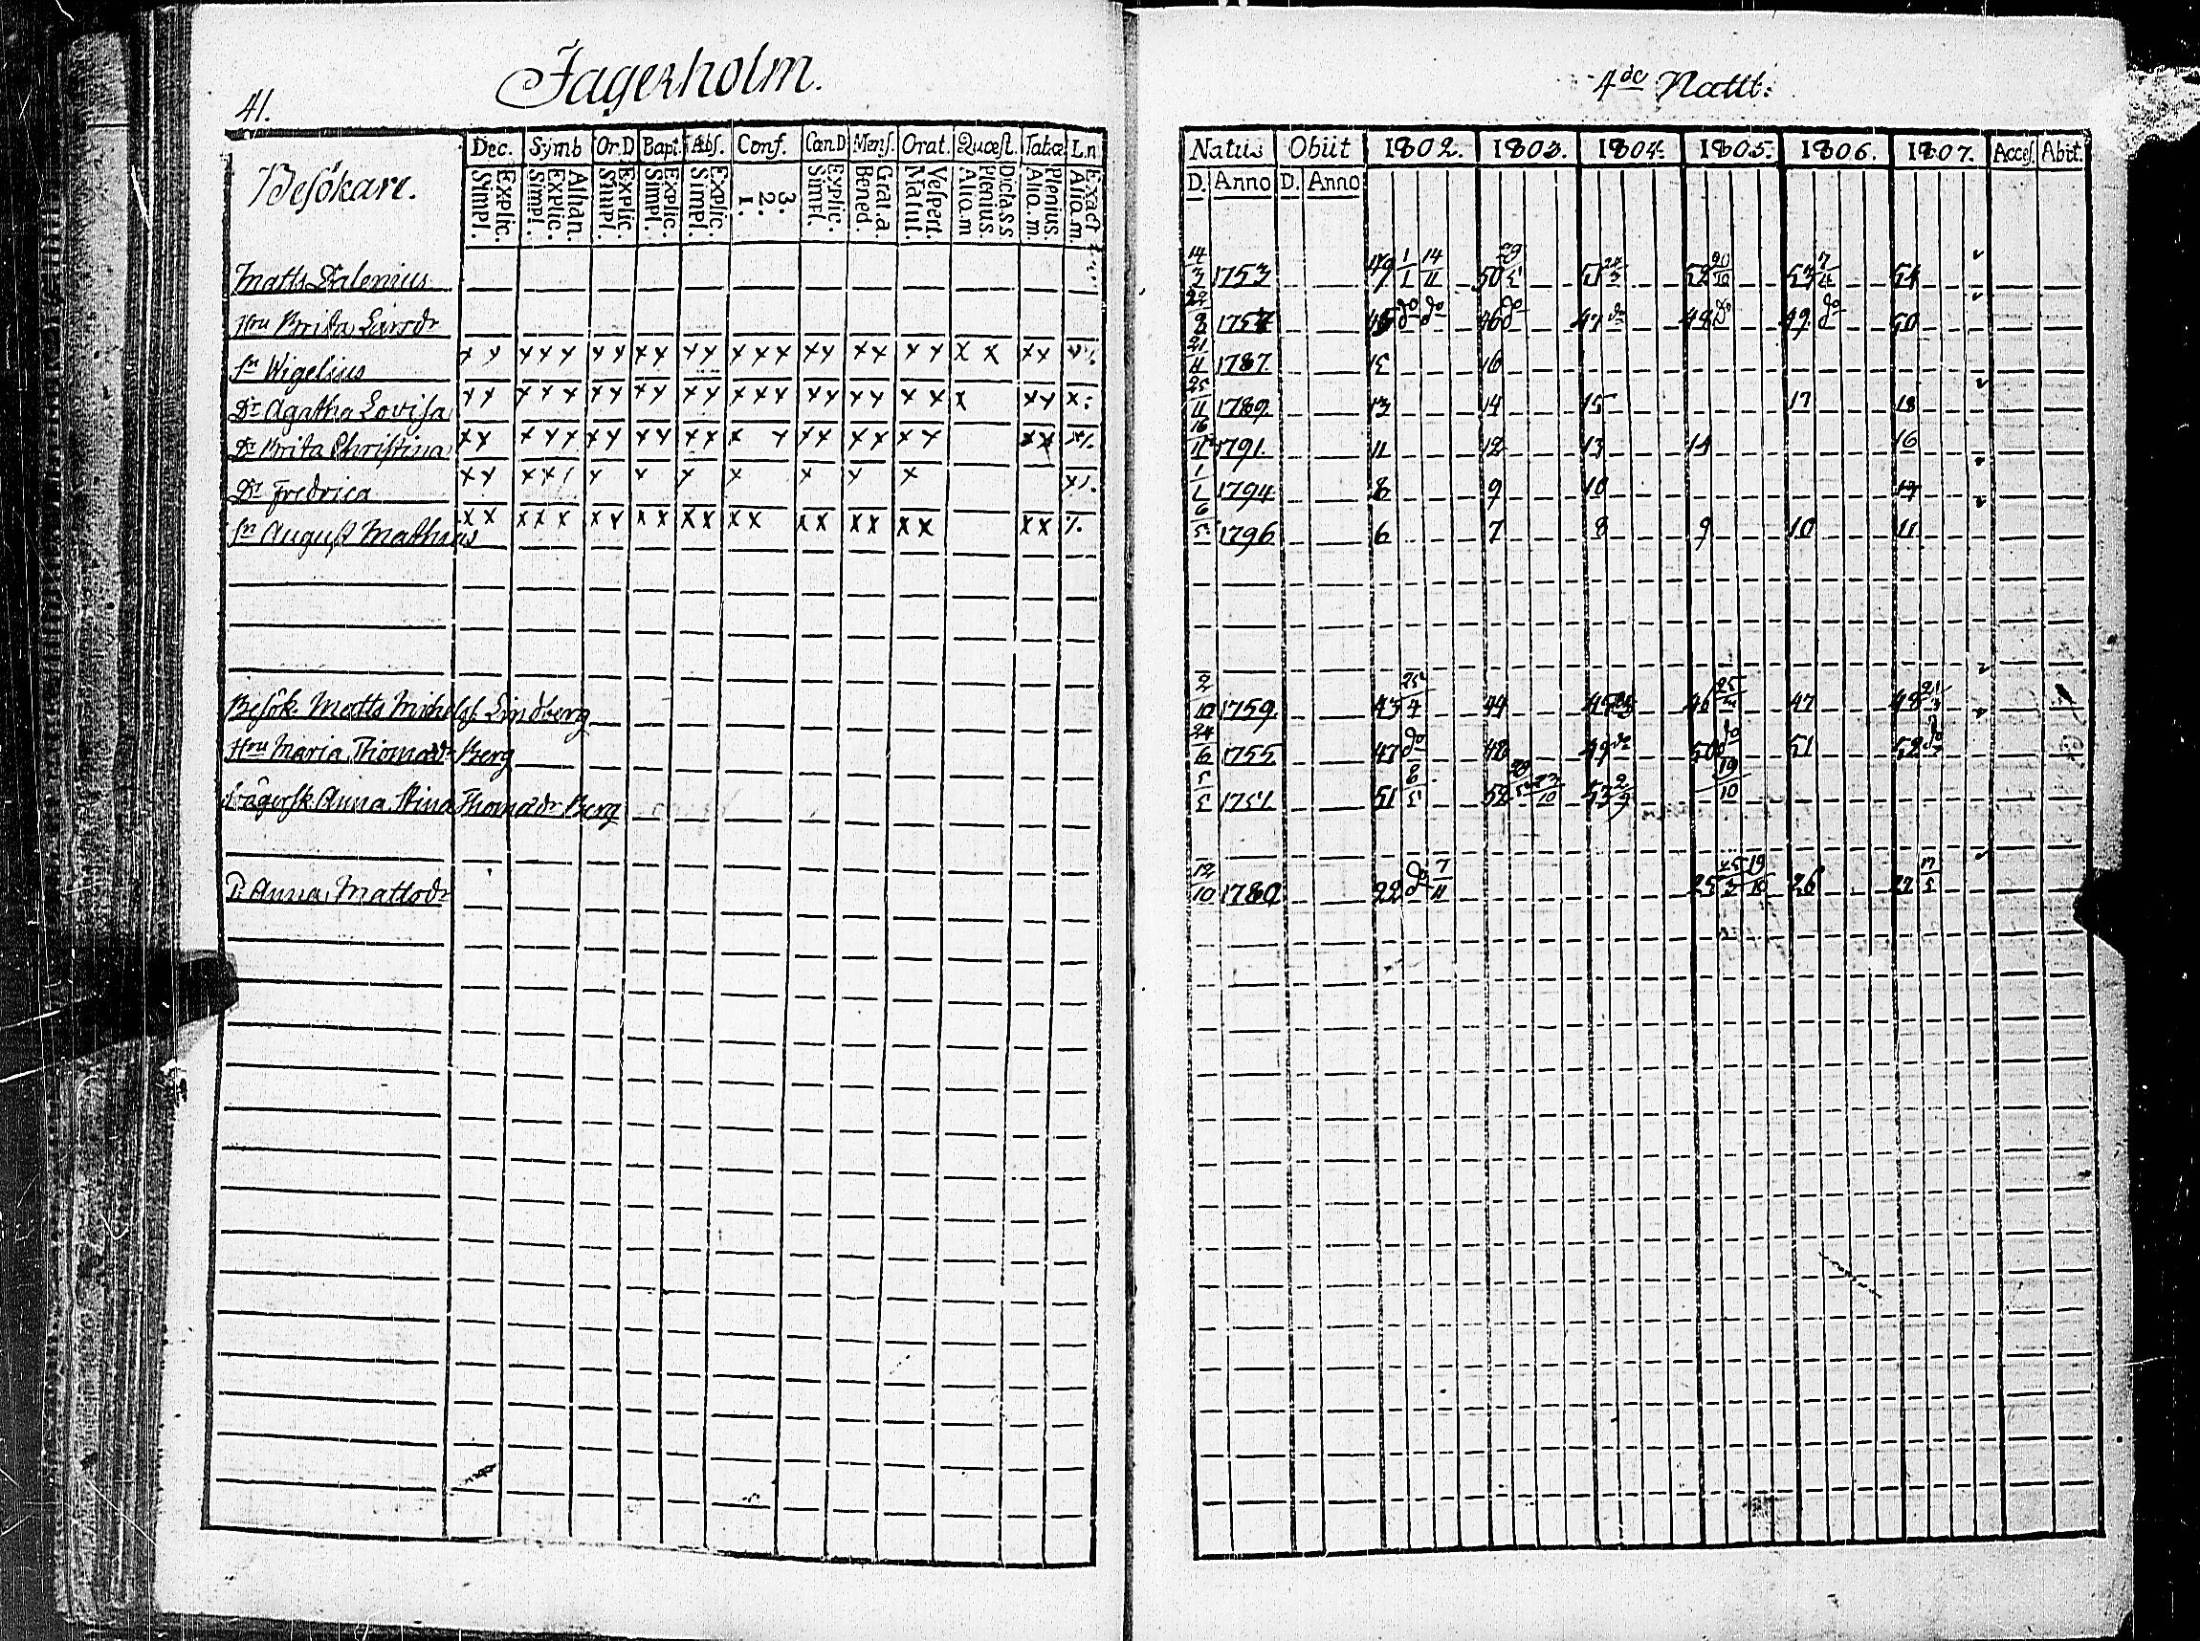 41.
Jagerholm.
Besökare.
Dec. Symb Or.D Bapt. Abs. Conf. Can.D Mens. Orat. Quæst. Tabæ L.n
Explic. Simpl. Athan. Explic. Simpl. Explic. Simpl. Explic. Simpl. Explic. Simpl. 3. 2. 1. Explic. Simpl. Grat.a. Bened. Vespert. Matut. Dicta.s.s. Plenius. Aliq.m Plenius. Aliq.m. Exact Aliq.m.
Matts Dalenius
Hru Brita Larsdr
Sn Wigelius x x x x x x x x x x x x x x x x x x x x x x x x
Dr Agatha Lovisa x x x x x x x x x x x x x x x x x x x x x x x
Dr Brita Christina x x x x x x x x x x x x x x x x x x x x x
Dr Fredrica x x x x x x x x x x x
Sn August Mathias x x x x x x x x x x x x x x x x x x x x x
Besök. Matts Michelss. Lindberg
Hru Maria Thomædr Berg
Svägersk. Anna Stina Thomædr Berg
P. Anna Mattsdr
4de Rattl:
Natus Obiit 1802. 1803. 1804. 1805. 1806. 1807. Acces. Abit.
D. Anno D. Anno
14/3 1753 49 1/1 14/11 50 51 52 20/10 53 54
22/8 1757 45 do do 46 do 47 do 48 do 49 do 50
21/11 1787. 15 16
25/11 1789 13 14 15 17 18
16/11 1791. 11 12 13 14 16
1/1 1794 8 9 10
6/5 1796 6 7 8 9 10 11
2/10 1759 43 25/4 44 45 46 47 48
24/6 1755 47 do 48 49 do 50 do 51 52 do
5/5 1751 51 52 53 19/10
12/10 1780 22 do 7/11 25 19/10 26 27